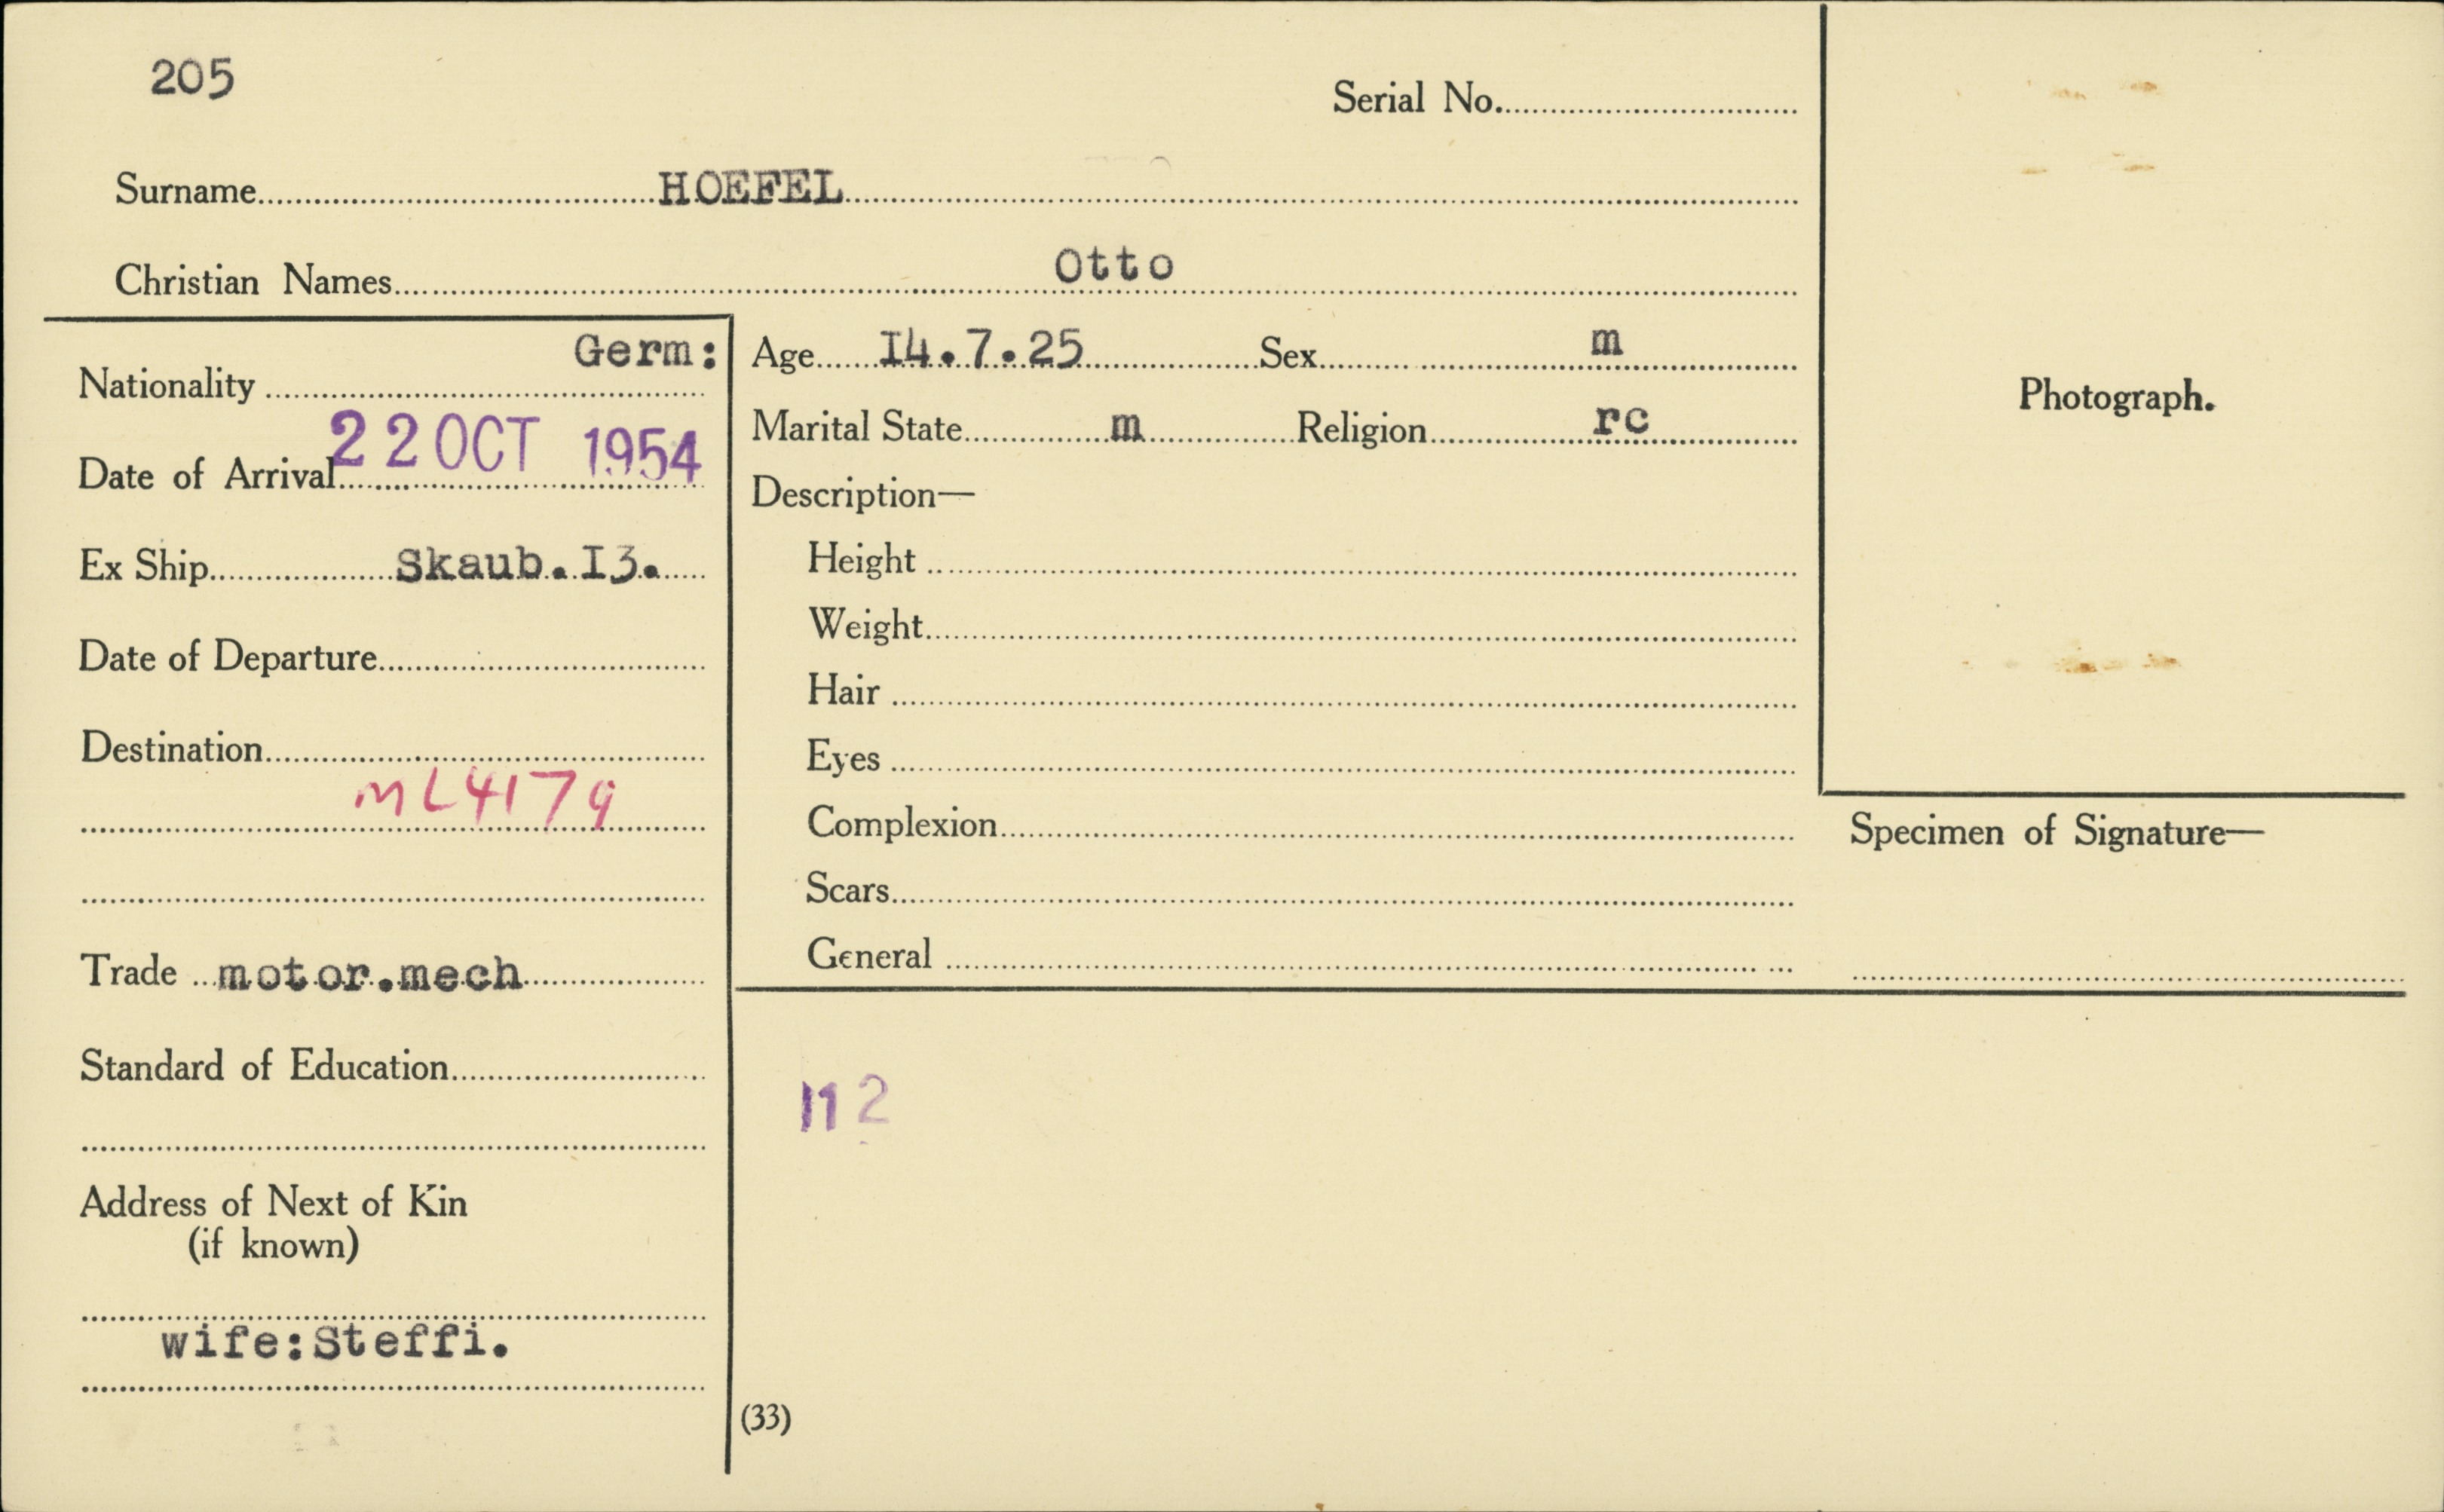 205
Serial No.
Surname HOEFEL
Christian Names Otto
Nationality Germ:
Date of Arrival 22 OCT 1954
Ex Ship Skaub.I3.
Date of Departure
Destination
ML4179
Trade motor.mech
Standard of Education
Address of Next of Kin
(if known)
wife:Steffi.
Age I4.7.25 Sex m
Marital State m Religion rc
Description—
Height
Weight
Hair
Eyes
Complexion
Scars
General
Photograph.
Specimen of Signature—
112
(33)